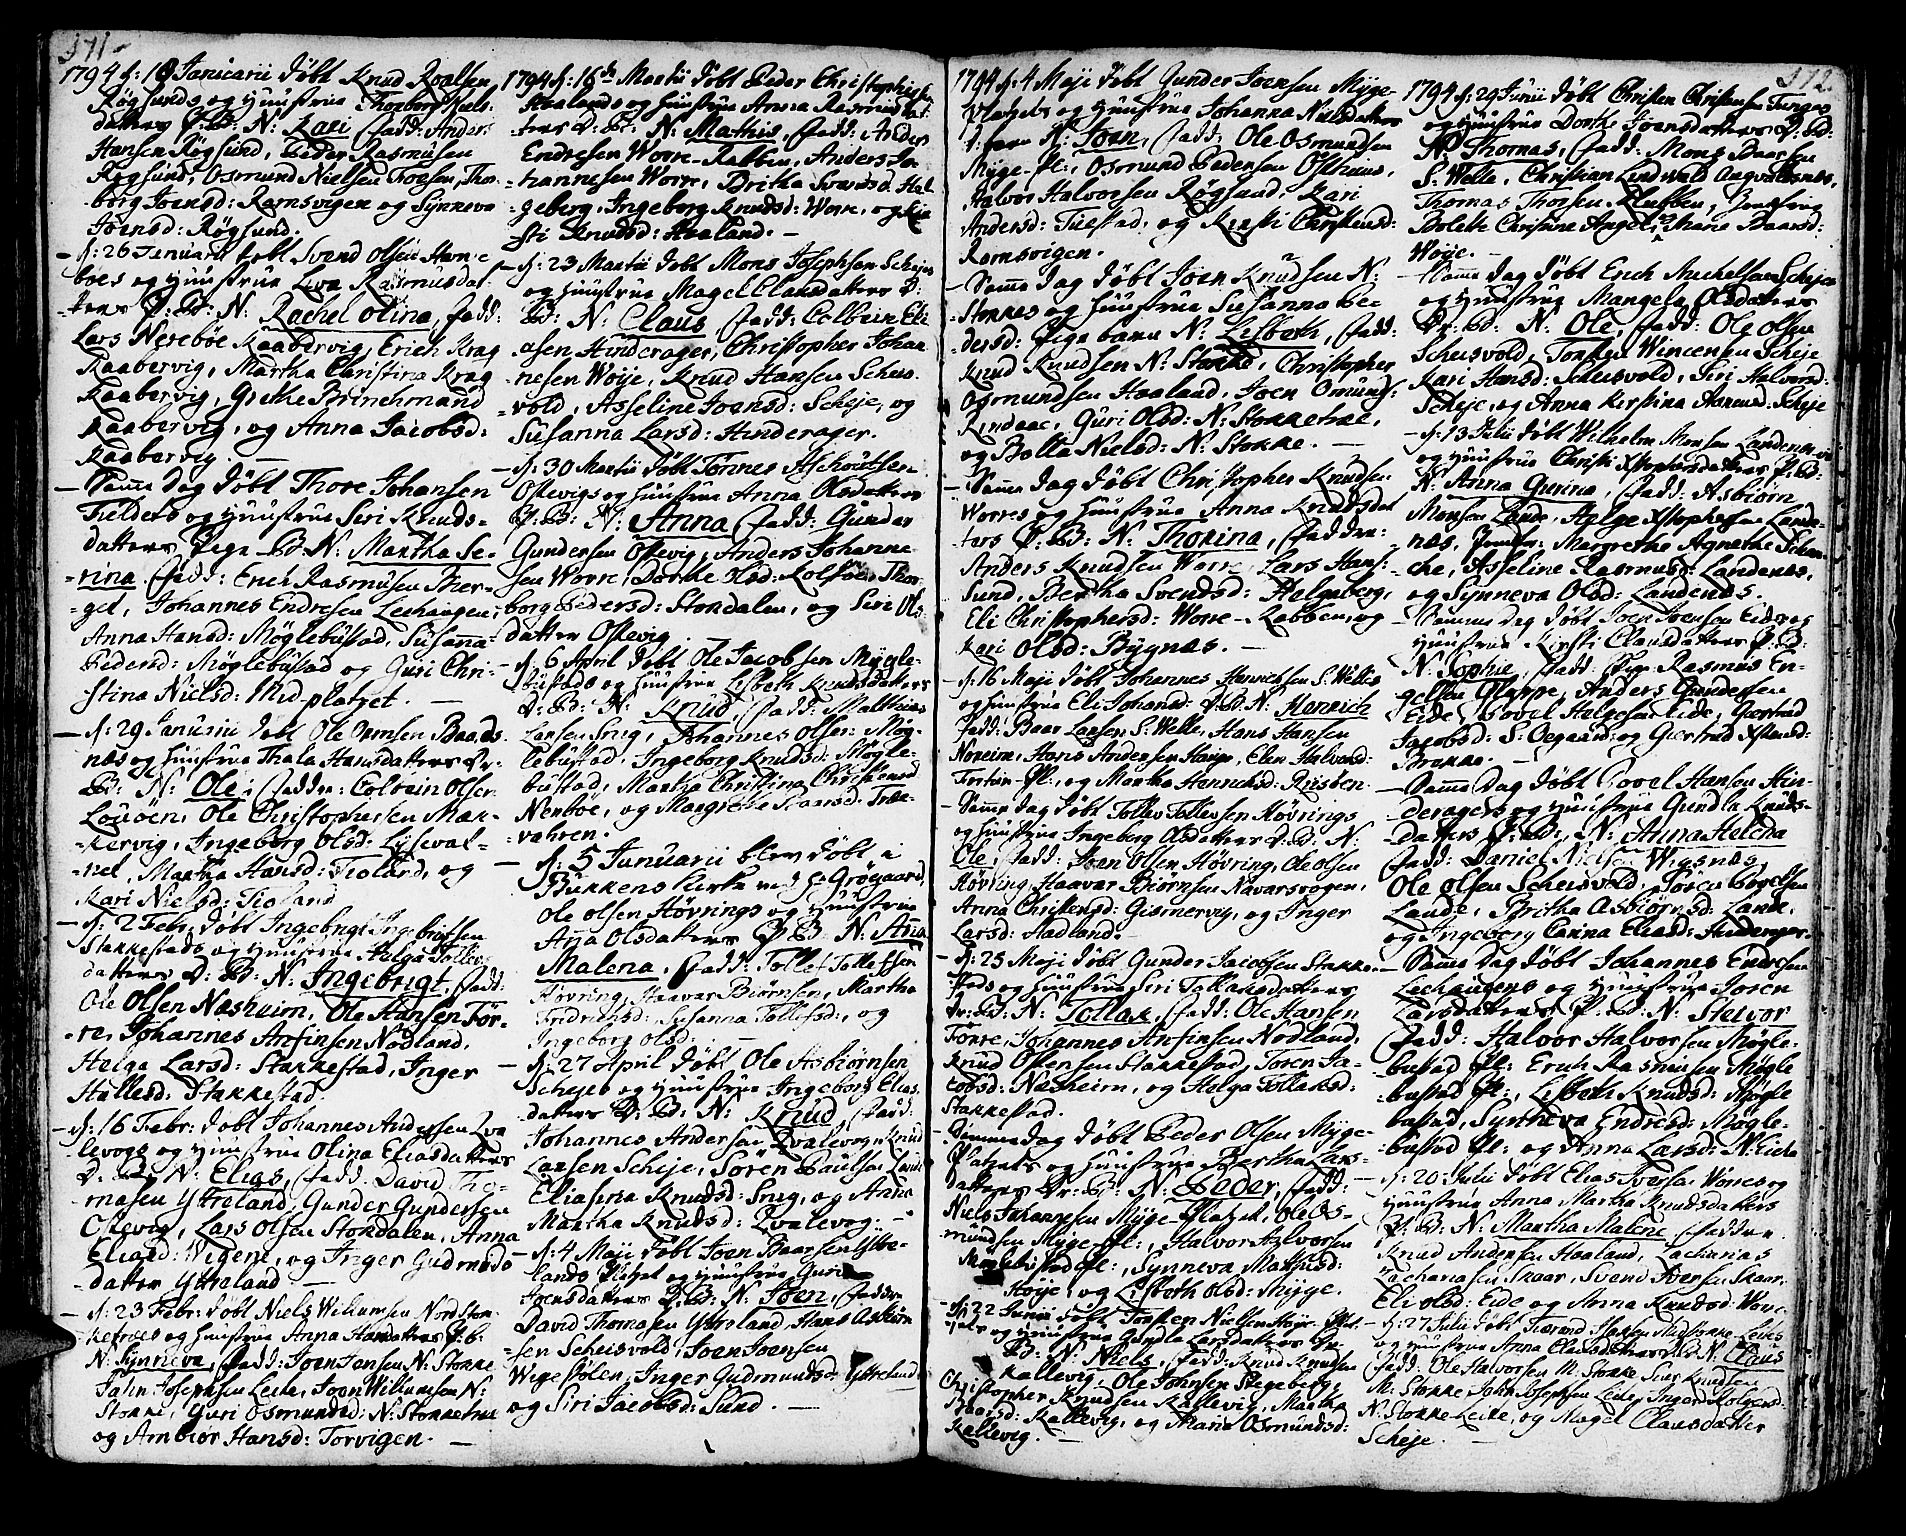 371
1794 d: 18 Januarii døbt Knud Roalsen
Røgsunds og Huustrue Thorborg Niels-
datters P: B: N: Kari Fadd: Anders
Hansen Røgsund, Peder Rasmusen
Røgsund, Osmund Nielsen Troesen, Thor-
borg Joensd: Ramsvigen og Synneva
Joensd: Røgsund.
- d: 26 Januarii døbt Svend Olsen
og Huustrue Eva Rasmusdat-
ters P: B: N: Rachel Olina, Fadd:
Lars Nereboe Kaabervig, Erich Krag
Kaabervig, Martha Christina Krag
Kaabervig, Grethe Brinchmand
Kaabervig, og Anna Jacobsd:
Kaabervig.
- Samme Dag døbt Thore Johansen
Fielders og Huustrue Siri Knuds-
datters Pige B: N: Martha Se-
rina, Fadd: Erich Rasmusen
Johannes Endresen Leehaugen,
Anna Hansd: Møglebustad, Susanna
Pedersd: Møglebustad og Guri Chri-
stina Nielsd: Mid-platzet. -
- d: 29 Januarii døbt Ole Baads-
næs og Huustrue Thala Hansdatters Dr:
B: N: Ole, Faddr: Colbein Olsen
Ole Christophersen
Ingeborg Olsd:
Martha Hansd: Fioland, og
Kari Nielsd: Fioland
- d: 2 Febr: døbt Ingebrigt Ingebritsen
Stakkestads og Huustrue Helga Tollevs-
datters D: B: N: Ingebrigt, Fadd:
Ole Olsen Nasheim, Ole Hansen Tør-
re, Johannes Anfinsen Nodland,
Helga Larsd: Stakkestad, Inger
Hallesd: Stakkestad.
- d: 16 Febr: døbt Johannes Andersen Qva-
levogs og Huustrue Olina Eliasdatters
D: B: N: Elias, Fadd: David Tho-
masen Yttreland, Gunder Gundersen
Ostevig, Lars Olsen Stokdalen, Anna
Eliasd: og Inger Gudmunds-
datter Yttreland -
- d: 23 Febr: døbt Niels Willumsen
og Huustrue Anna Hansdatters P: B:
N: Synneva, Fadd: Joen Jansen N: Stokke
Jahn Josephsen Leite, Joen Willumsen N:
Stokke, Guri Osmundsd: N: Stokke
og Ambiør Hansd: Torvigen. -
1794 d: 16de Martii døbt Peder Christophersen
Haalands og Huustrue Anna Rasmusdat-
ters D: B: N: Mathis, Fadd: Anders
Endresen Worre-Rabben, Anders Jo-
hannesen Worre, Britha Svensd: Hel-
geberg, Ingeborg Knudsd: Worre, og Kir-
sti Knudsd: Haaland. -
- d: 23 Martii døbt Mons Josephsen Scheje
og Huustrue Magel Clausdatters D:
B: N: Claus, Fadd: Colbein Eli-
asen Hinderager, Christopher Johan-
nesen Woije, Knud Hansen Scheis-
vold, Asseline Joensd: Scheje, og
Susanna Larsd: Hinderager.
- d: 30 Martii døbt Tønnes
Ostevigs og Huustrue Anna Olsdatters
P: B: N: Anna, Fadd: Gunder
Gundersen Ostevig, Anders Johanne-
sen Worre, Dorthe Olsd: Kolstøe, Thor-
borg Pedersd: Stokdalen, og Siri Ols-
datter Ostevig.
- d: 6 April døbt Ole Jacobsen Mygle-
bustads og Huustrue Lisbeth Knudsdatters
D: B: N: Knud, Fadd: Matthias
Larsen Snig, Johannes Olsen Møg-
lebustad, Ingeborg Knudsd: Møgle-
bustad, Martha Christina Christensd:
Nereboe, og Margrethe
- d: 5 Januarii blev døbt i
Bukkens Kirke ved Hr Grøgaard,
Ole Olsen Høvrings og Huustrue
Anna Olsdatters P: B: N: Anna
Malena, Fadd: Tollef Tollefsen
Høvring, Haavar Biørnsen, Martha
Susanna Tollefsd:, og
Ingeborg Olsd: -
- d: 27 April døbt Ole Asbiørnsen
Schejes og Huustrue Ingeborg Elias-
datters D: B: N: Knud, Fadd:
Johannes Andersen Qvalevog, Knud
Larsen Scheje, Søren Paulsen Lande
Eliasina Knudsd: Snig, og Anna
Martha Knudsd: Qvalevog: -
- d: 4 Maji døbt Joen Baarsen Yttre-
lands Platzet og Huustrue Guri
Joensdatters D: B: N: Joen, Faddr:
David Thomasen Yttreland, Hans Asbiørn-
sen Scheisvold, Joen Joensen
Wigestølen, Inger Gudmundsd: Yttreland
og Siri Jacobsd: Sund. -
1794 d: 4 Maji døbt Gunder Joensen Myge-
Platzets og Huustrue Johanna Nielsdatters
N: Joen, Fadd: Ole Osmundsen
Myge-Pl:, Osmund Pedersen Østhuus,
Halvor Halvorsen Røgsund, Kari
Andersd: Tuestad, og Kirsti Christensd:
Ramsvigen.
- Samme Dag døbt Joen Knudsen N:
Stokkes og Huustrue Susanna Pe-
dersd: Pige barn N: Lisbeth, Fadd:
Knud Knudsen N: Stokke, Christopher
Osmundsen Haaland, Joen Omunds:
Guri Olsd: N: Stokke
og Bolla Nielsd: N: Stokke. -
- Samme Dag døbt Christopher Knudsen
Worres og Huustrue Anna Knudsdat-
ters P: B: N: Thorina, Faddre:
Anders Knudsen Worre, Lars Hans:
Sund, Bertha Svendsd: Helgeberg,
Eli Christophersd: Worre-Rabben, og
Kari Olsd: Bygnæs. -
- d: 16 Maji døbt Johannes Henrichsen S: Welles
og Huustrue Eli Johansd: D: B: N: Henrich
Fadd: Baar Larsen S: Welle, Hans Hansen
Noreim, Hans Andersen Hauge, Elen Halvorsd:
og Martha Henrichsd: Risoen
- Samme Dag døbt Tollev Tollevsen Høvrings
og Huustrue Ingeborg Olsdatters D: B: N:
Ole, Fadd: Joen Olsen Høvring, Ole Olsen
Høvring, Haavar Biørnsen Navarsvogen,
Anna Christensd: Gismervig, og Inger
Larsd: Hadland. -
- d: 25 Maji døbt Gunder Jacobsen Stakke-
stads og Huustrue Siri Tollaksdatters
Dr: B: N: Tollak, Fadd: Ole Hansen
Torre, Johannes Anfinsen Nodland,
Knud Ostensen Stakkestad, Joren Ja-
cobsd: Nasheim, og Helga Tollaksd:
Stakkestad.
- Samme Dag døbt Peder Olsen Myge-
Platzets og Huustrue Bertha Lars-
datters Dr: B: N: Peder, Fadd:
Niels Johannesen Myge-Platzet, Ole Os-
mundsen Myge-Pl:, Halvor Halvorsen
Møglebustad Pl:, Synneva
Høije, og Lisbeth Olsd: Myge.
- d: 22 Junii døbt Torsten Nielsen
og Huustrue Gundla Larsdatters Dr:
B: N: Niels, Fadd: Knud Knudsen
Kallevig, Ole Johnsen Stegeberg,
Christopher Knudsen Kallevig, Martha
Baarsd: Kallevig, og Maria Osmundsd:
Kallevig. -
372.
1794 d: 29 Junii døbt Christen Christensen
og Huustrue Dorthe Joensdatters D: B:
N: Thomas, Fadd: Mons Baarsen
S: Welle, Christian Lindwald Augvaldsnæs,
Thomas Thorsen Jomfrue
Bolette Christine Angel, Maria Baarsd:
Woije.
- Samme Dag døbt Erich Michelsen Scheje
og Huustrue Mangela Olsdatters
Dr: B: N: Ole, Fadd: Ole Olsen
Scheisvold, Torsten Wincensen Scheje
Kari Hansd: Scheisvold, Siri Halvorsd:
Scheje, og Anna Kirstina Scheje
- d: 13 Julii døbt Wilhelm Monsen Landenæs
og Huustrue Christi Xstophersdatters P: B:
N: Anna Gurina, Fadd: Asbiørn
Monsen Lande, Helge Xstophersen Lande-
næs, Jomfr: Margrethe Agnethe
Asseline Rasmusd: Landenæs,
og Synneva Olsd: Landenæs.
- Samme Dag døbt Joen Joensen Eides og
Huustrue Kirsti Clausdatters P: B:
N: Sophie, Fadd: Rasmus En-
gelsen Anders Gundersen
Eide, Povel Helgesen Eide, Giertrud
Jacobsd: S: og Giertrud Xstensd:
- Samme Dag døbt Povel Hansen Hin-
deragers og Huustrue Gundla Knuds-
datters P: B: N: Anna Helena
Fadd: Daniel Nielsen Wigsnæs,
Ole Olsen Scheisvold, Søren Povelsen
Lande, Britha Asbiørnsd: Lande,
og Ingeborg Canna Eliasd: Hinderager.
- Samme Dag døbt Johannes Endresen
Leehaugens og Huustrue Joren
Larsdatters P: B: N: Steivor
Fadd: Halvor Halvorsen Møgle-
bustad Pl: Erich Rasmusen Møgle-
bustad Pl:, Lisbeth Knudsd: Møgle-
bustad, Syntheva Endresd: Møgle-
bustad Pl: og Anna Larsd: N: Eide
- d: 20 Julii døbt Elias Iversen Worres og
Huustrue Anna Martha Knudsdatters
P: B: N: Martha Malene, Faddre:
Knud Andersen Haaland, Zacharias
Zachariasen Skaar, Svend Iversen Skaar,
Eli Olsd: Eide og Anna Knudsd: Worre
- d: 27 Julii døbt
og Huustrue Anna N: Claus
Fadd: Ole Halvorsen M: Stokke, Siver Knudsen
M: Stokke, John Josephsen Leite, Inger Holgersd:
N: Stokke Leite, og Magel Clausdatter
Scheje. -